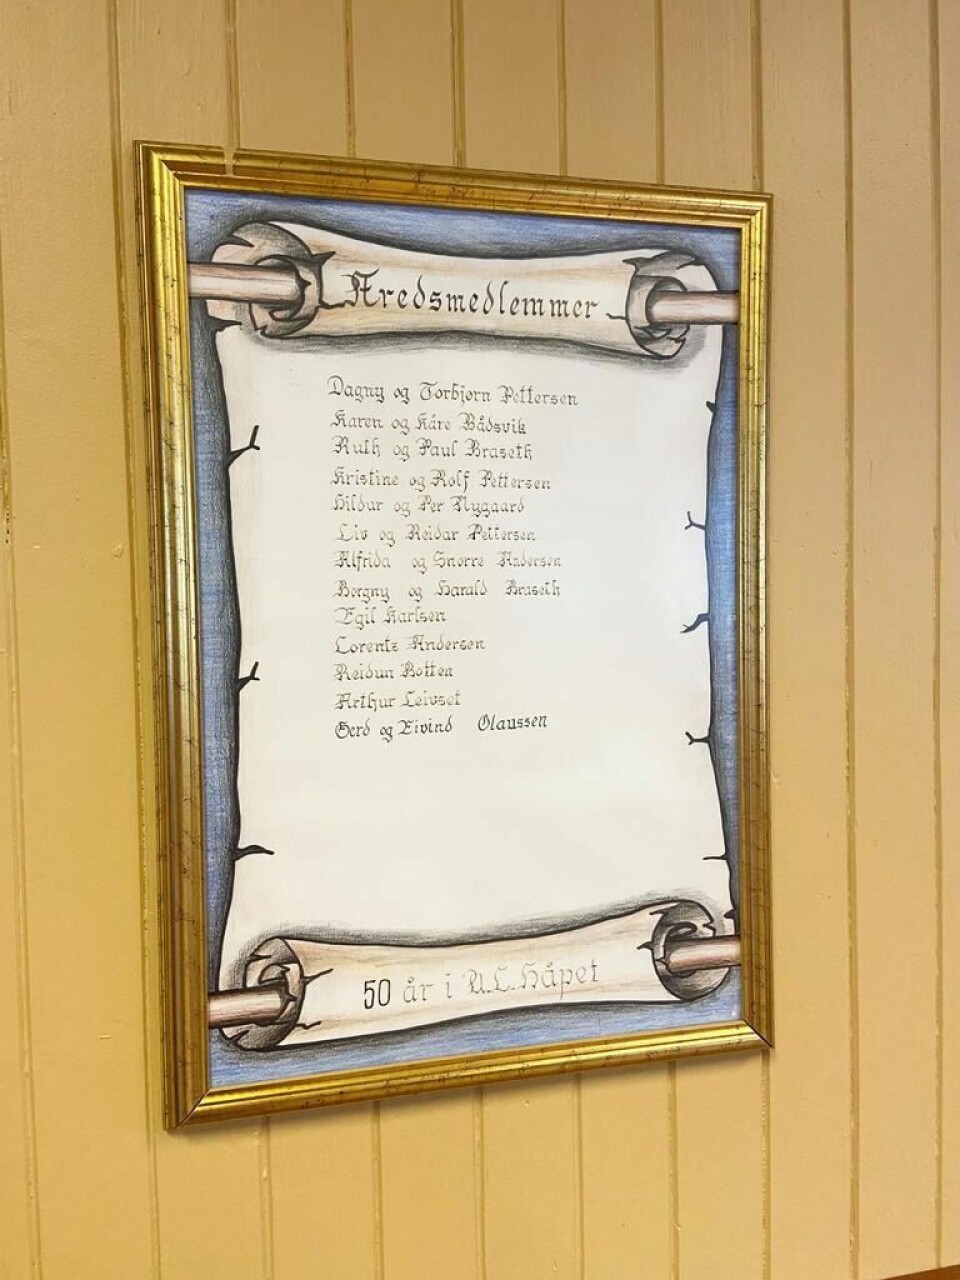 Æredsmedlemmer
Dagny og Torbjørn Pettersen
Karen og Kåre Bådsvik
Ruth og Paul Braseth
Kristine og Rolf Pettersen
Hildur og Per Nygaard
Liv og Reidar Pettersen
Alfrida og Snorre Andersen
Borgny og Harald Braseth
Egil Karlsen
Lorentz Andersen
Reidun Botten
Arthur Leivset
Gerd og Eivind Olaussen
50 år i U.L. Håpet